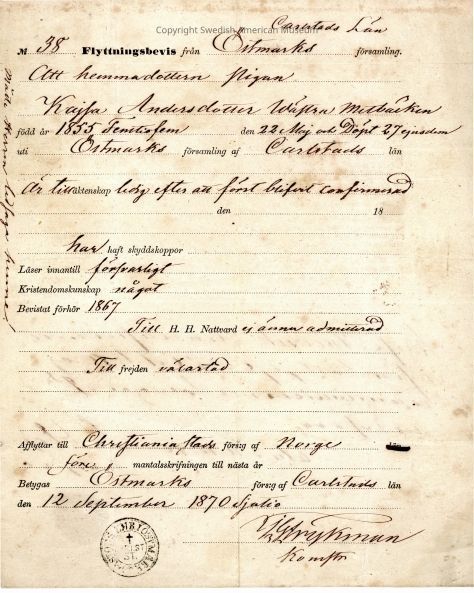 Copyright Swedish American Museum
Carlstads Län
№ 38 Flyttningsbevis från Östmarks församling.
Att hemmadottern Pigan
Kajsa Andersdotter Wästra Metbäcken
född år 1855 Femtiofem den 22 Maj och Döpt 27 ejusdem
uti Östmarks församling af Carlstads län
Är till äktenskap ledig efter att först blifvit confirmerad
den 18
har haft skyddskoppor
Läser innantill försvarligt
Kristendomskunskap något
Bevistat förhör 1867
Till H. H. Nattvard ej ännu admitterad
Till frejden välartad
Afflyttar till Christiania stads förs:g af Norge län
före mantalsskrifningen till nästa år
Betygas Östmarks förs:g af Carlstads län
den 12 September 1870 Sjutio